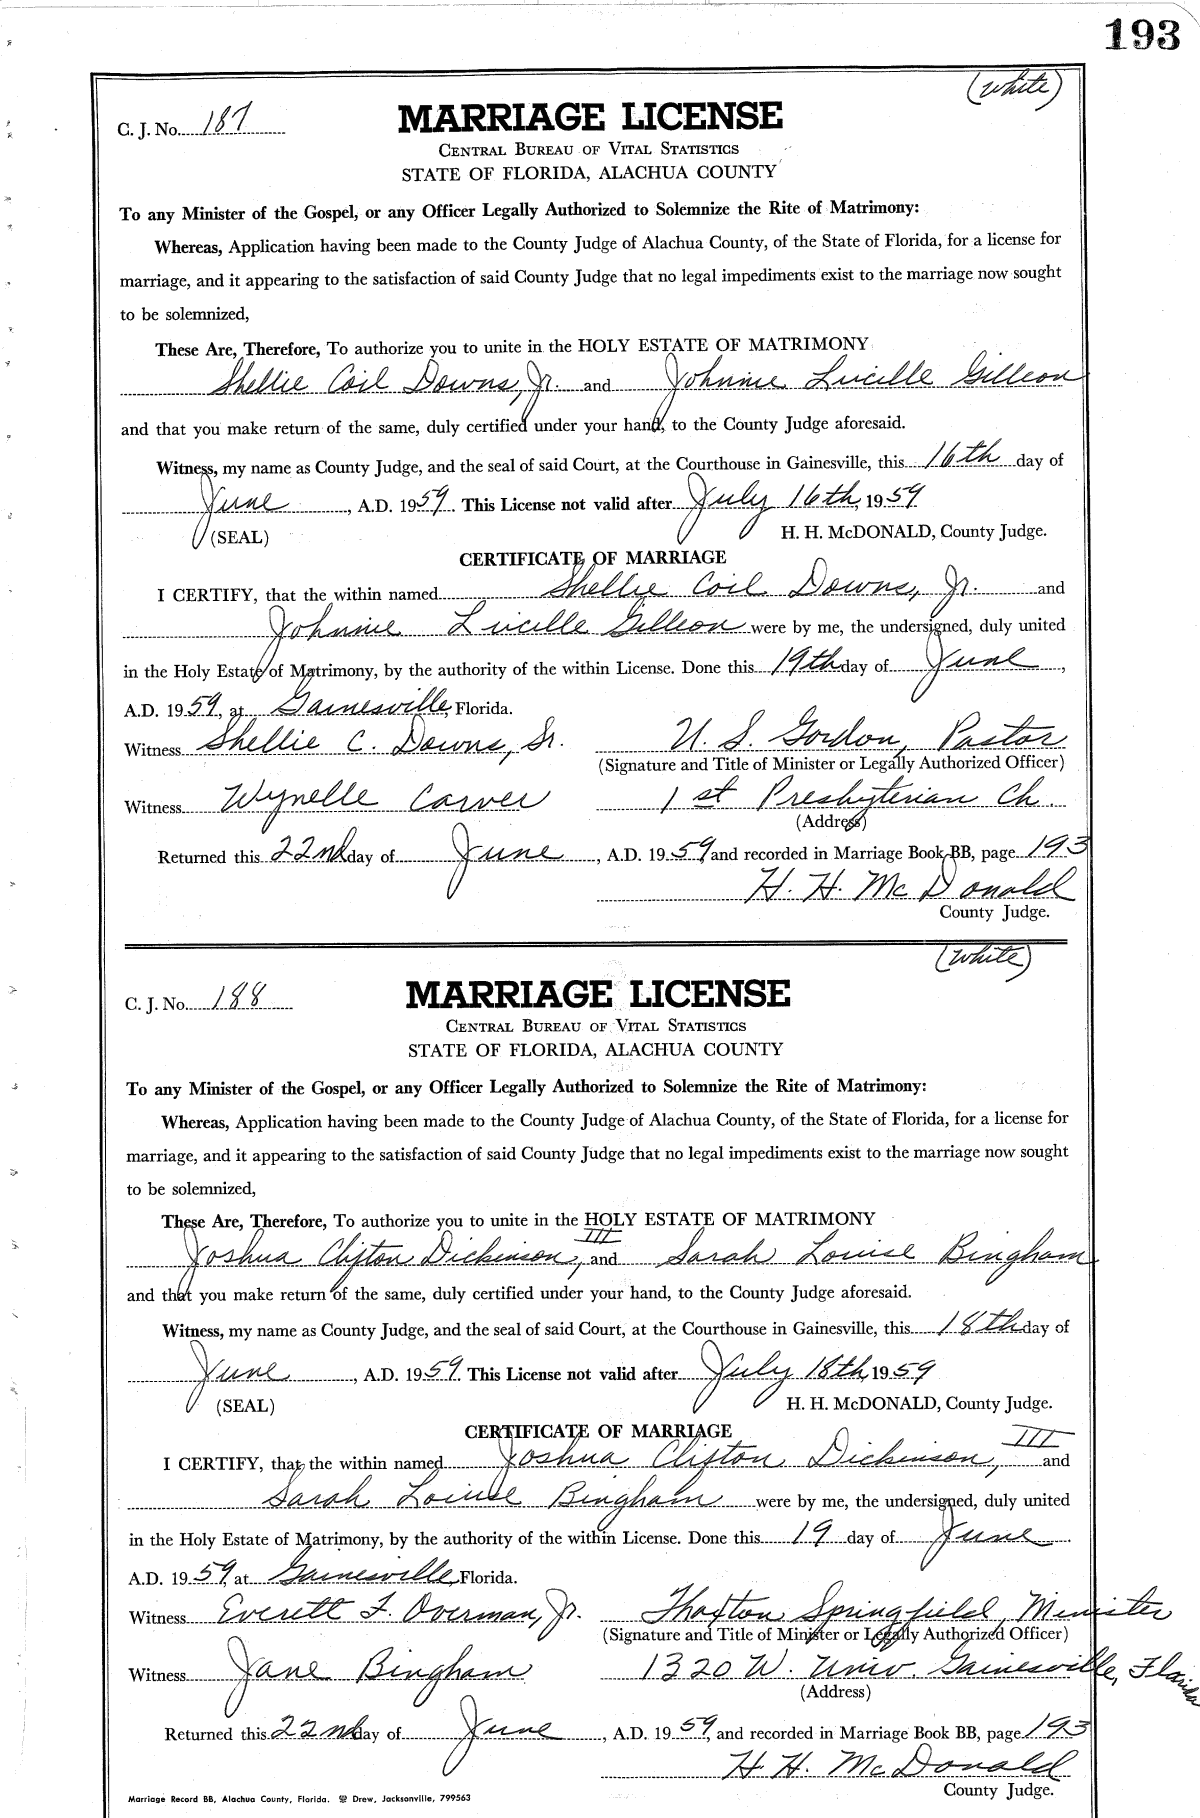 193
(White)
C. J. No. 187
MARRIAGE LICENSE
CENTRAL BUREAU OF VITAL STATISTICS
STATE OF FLORIDA, ALACHUA COUNTY
To any Minister of the Gospel, or any Officer Legally Authorized to Solemnize the Rite of Matrimony:
Whereas, Application having been made to the County Judge of Alachua County, of the State of Florida, for a license for
marriage, and it appearing to the satisfaction of said County Judge that no legal impediments exist to the marriage now sought
to be solemnized,
These Are, Therefore, To authorize you to unite in the HOLY ESTATE OF MATRIMONY
Shellie Coil Downs, Jr. and Johnnie Lucille Gilleon
and that you make return of the same, duly certified under your hand, to the County Judge aforesaid.
Witness, my name as County Judge, and the seal of said Court, at the Courthouse in Gainesville, this 16th day of
June, A.D. 1959. This License not valid after July 16th, 1959
(SEAL) H. H. McDONALD, County Judge.
CERTIFICATE OF MARRIAGE
I CERTIFY, that the within named Shellie Coil Downs, Jr. and
Johnnie Lucille Gilleon were by me, the undersigned, duly united
in the Holy Estate of Matrimony, by the authority of the within License. Done this 19th day of June,
A.D. 1959, at Gainesville, Florida.
Witness Shellie C. Downs, Sr. U. S. Gordon, Pastor
(Signature and Title of Minister or Legally Authorized Officer)
Witness Wynelle Carver 1st Presbyterian Ch.
(Address)
Returned this 22nd day of June, A.D. 1959, and recorded in Marriage Book BB, page 193
H. H. McDonald
County Judge.
(White)
C. J. No. 188
MARRIAGE LICENSE
CENTRAL BUREAU OF VITAL STATISTICS
STATE OF FLORIDA, ALACHUA COUNTY
To any Minister of the Gospel, or any Officer Legally Authorized to Solemnize the Rite of Matrimony:
Whereas, Application having been made to the County Judge of Alachua County, of the State of Florida, for a license for
marriage, and it appearing to the satisfaction of said County Judge that no legal impediments exist to the marriage now sought
to be solemnized,
These Are, Therefore, To authorize you to unite in the HOLY ESTATE OF MATRIMONY
Joshua Clifton Dickinson, III and Sarah Louise Bingham
and that you make return of the same, duly certified under your hand, to the County Judge aforesaid.
Witness, my name as County Judge, and the seal of said Court, at the Courthouse in Gainesville, this 18th day of
June, A.D. 1959. This License not valid after July 18th, 1959
(SEAL) H. H. McDONALD, County Judge.
CERTIFICATE OF MARRIAGE
I CERTIFY, that the within named Joshua Clifton Dickinson, III and
Sarah Louise Bingham were by me, the undersigned, duly united
in the Holy Estate of Matrimony, by the authority of the within License. Done this 19 day of June.
A.D. 1959, at Gainesville, Florida.
Witness Everett F. Overman, Jr. Thaxton Springfield, Minister
(Signature and Title of Minister or Legally Authorized Officer)
Witness Jane Bingham 1320 W. Univ. Gainesville, Florida
(Address)
Returned this 22nd day of June, A.D. 1959, and recorded in Marriage Book BB, page 193
H. H. McDonald
County Judge.
Marriage Record BB, Alachua County, Florida. Drew, Jacksonville, 799563